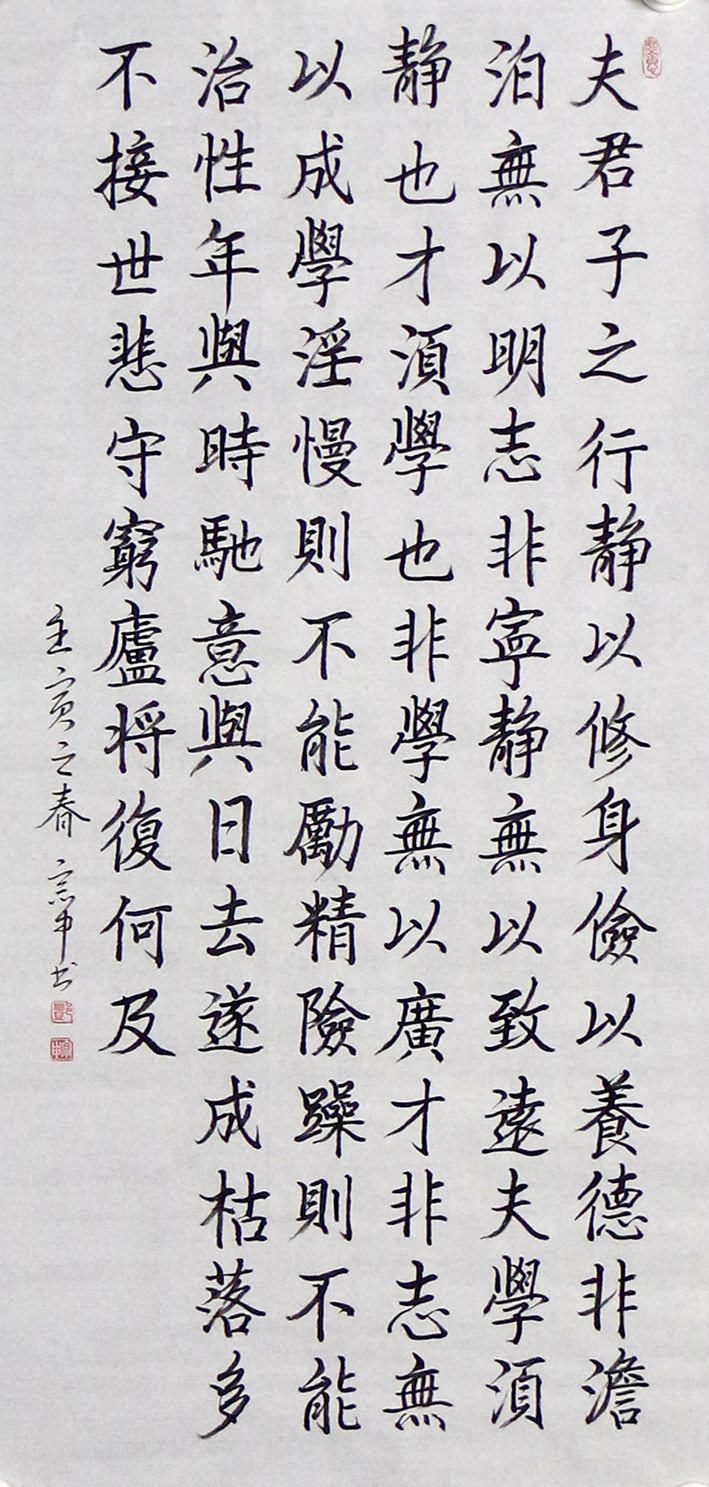 夫君子之行静以修身儉以養德非澹
泊無以明志非寧静無以致遠夫學湏
静也才湏學也非學無以廣才非志無
以成學淫慢則不能勵精險躁則不能
治性年與時馳意與日去遂成枯落多
不接世悲守窮廬将復何及
壬寅之春宗申书